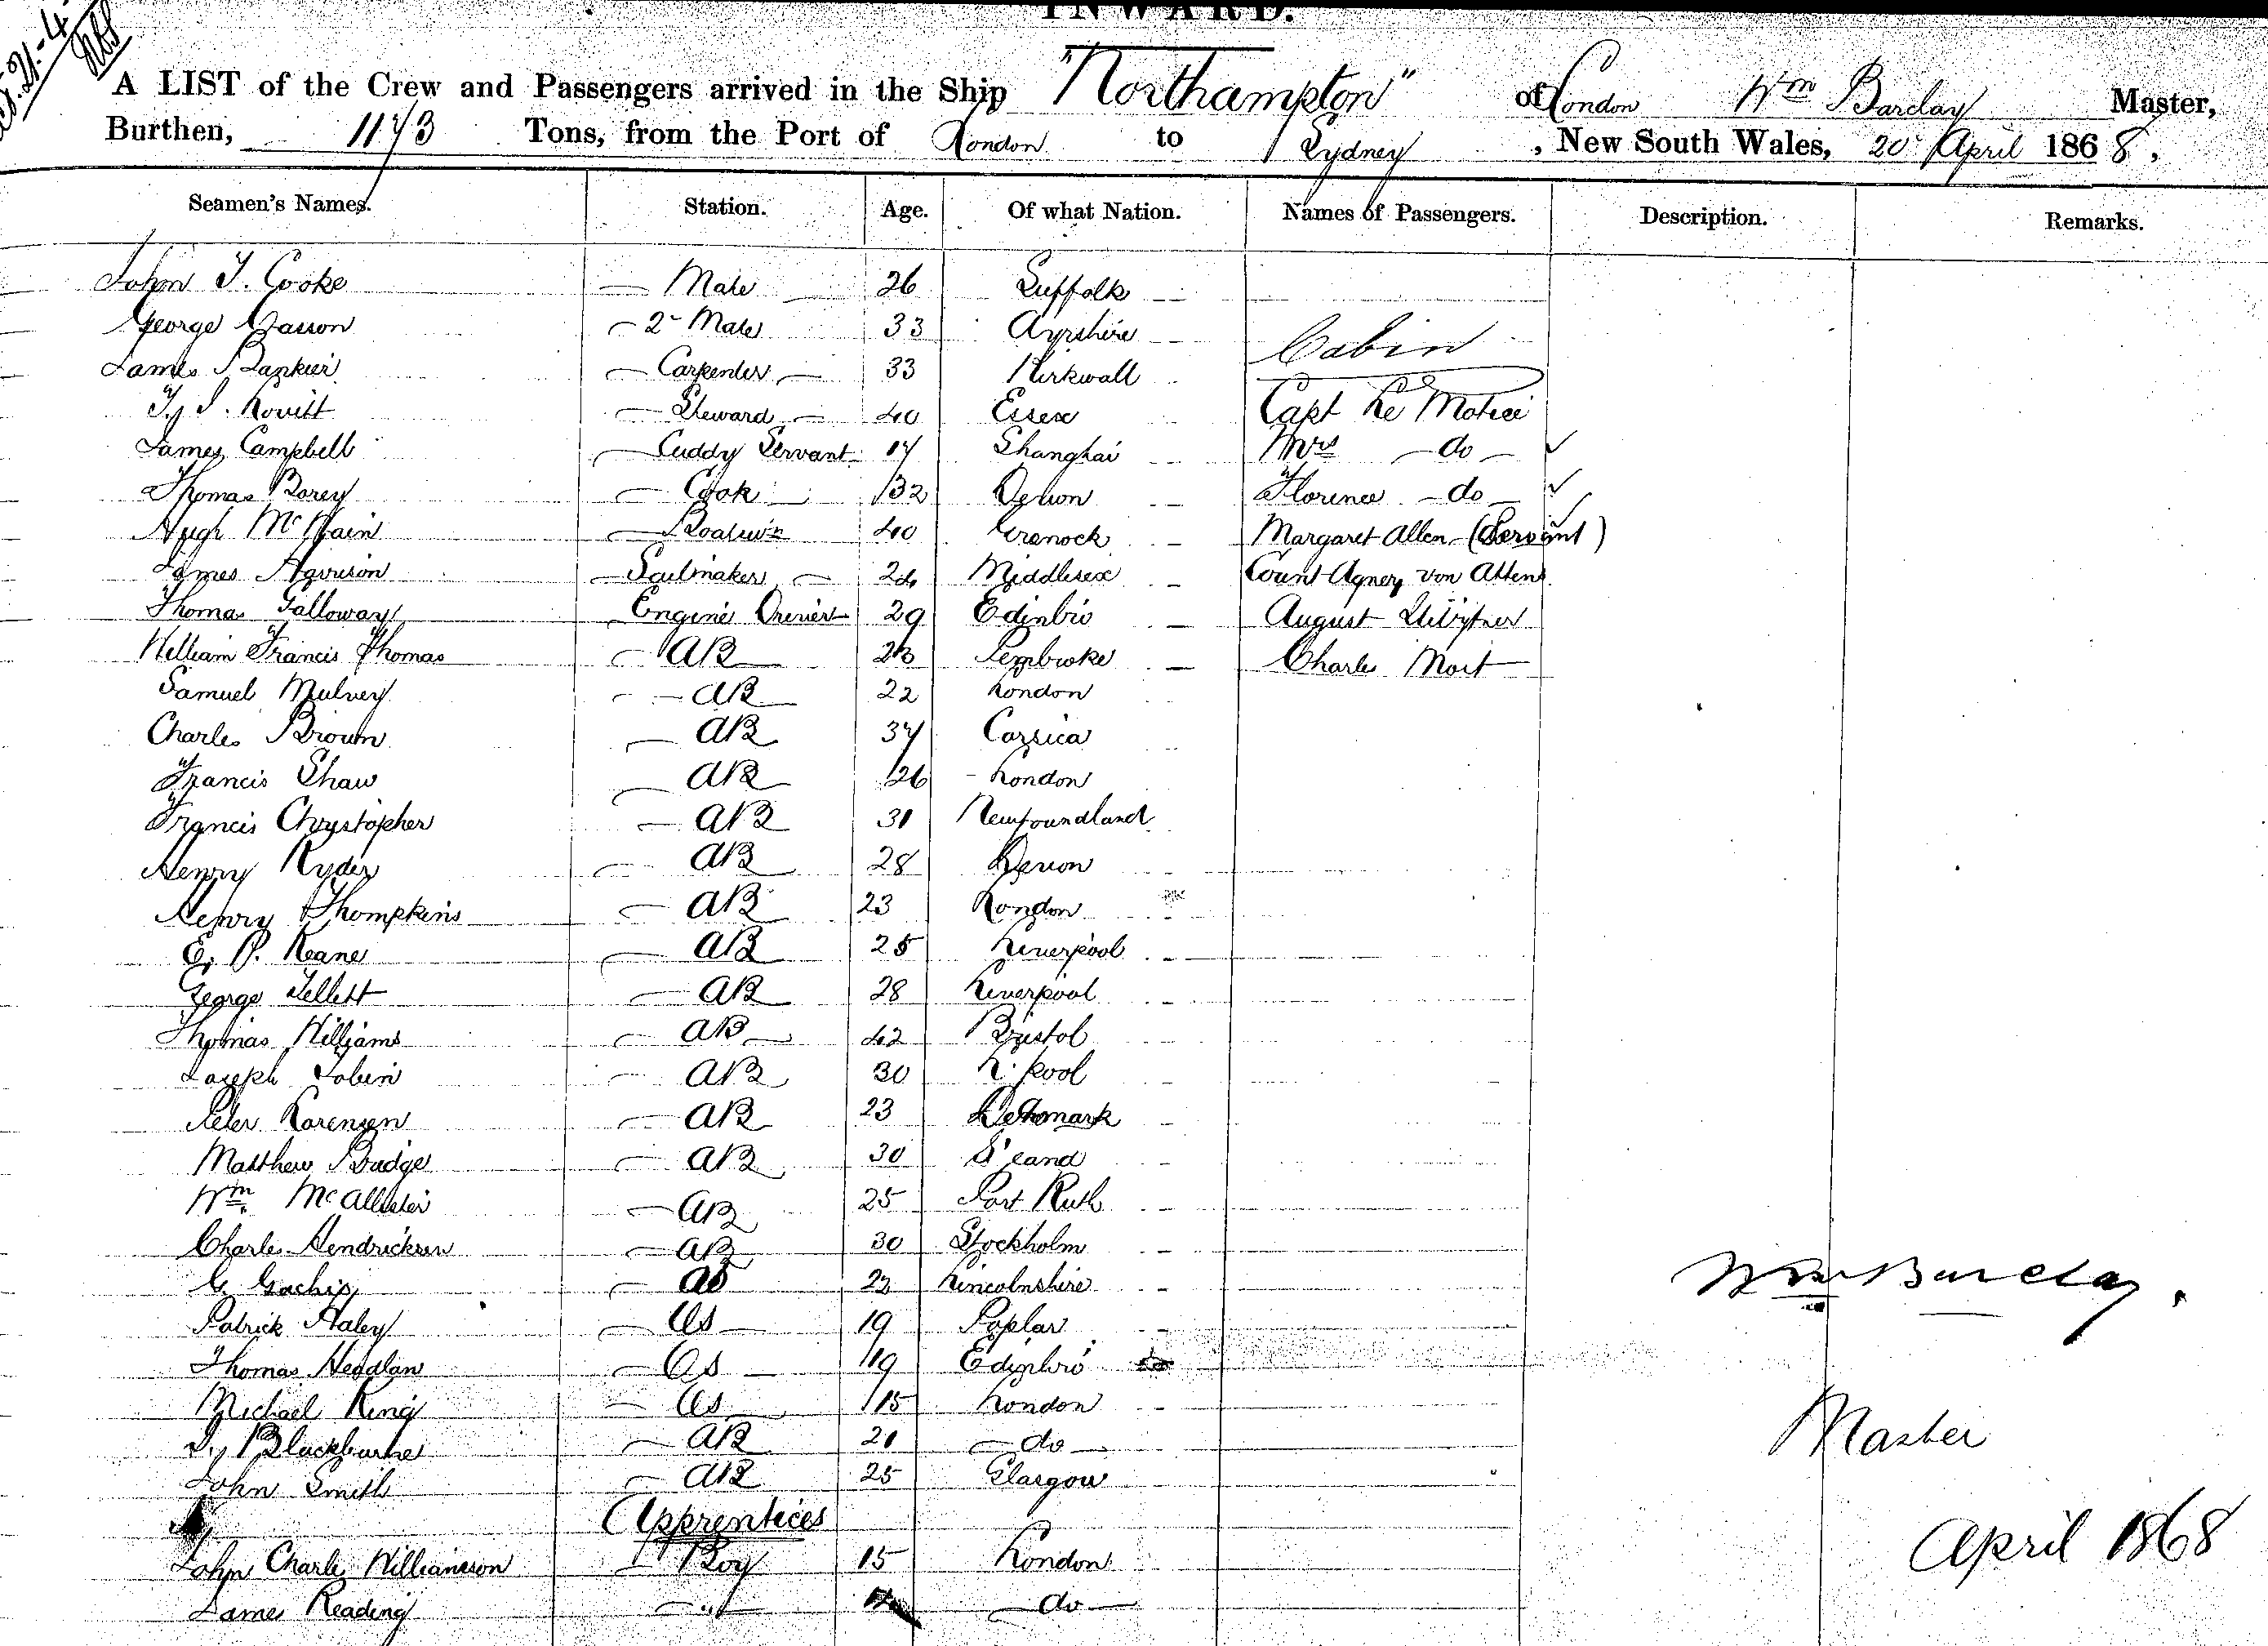 INWARD.
A LIST of the Crew and Passengers arrived in the Ship "Northampton" of London Wm Barclay Master,
Burthen, 1173 Tons, from the Port of London to Sydney, New South Wales, 20 April 1868,
Seamen's Names. Station. Age. Of what Nation. Names of Passengers. Description. Remarks.
John T. Cooke Mate 26 Suffolk
George Gasson 2 Mate 33 Ayrshire Cabin
James Bankier Carpenter 33 Kirkwall
T. J. Lovitt Steward 40 Essex Capt Le Motiee
James Campbell Cuddy Servant 17 Shanghai Mrs do
Thomas Borey Cook 32 Devon Florence do
Hugh McPhain Boatswn 40 Greenock Margaret Allen (Servant)
James Sailmaker 24 Middlesex Count Agney von Attens
Thomas Galloway Engine Driver 29 Edinbro August
William Francis Thomas AB 26 Pembroke Charles Mort
Samuel Mulvey AB 22 London
Charles Brown AB 37 Corsica
Francis Shaw AB 26 London
Francis Chrystopher AB 31 Newfoundland
Henry Ryder AB 28 Devon
Henry Thompkins AB 23 London
E. P. Keane AB 25 Liverpool
George Tellett AB 28 Liverpool
Thomas Williams AB 42 Bristol
Joseph Tobin AB 30 L'pool
Peter Lorensen AB 23 Denmark
Matthew Budge AB 30 S'land
Wm McAllister AB 25 Port Ruth
Charles Hendricksen AB 30 Stockholm
G. AB 23 Lincolnshire
Patrick Haley OS 19 Poplar
Thomas Headlan OS 19 Edinbro
Michael King OS 15 London
J. Blackburne AB 21 do
John Smith AB 25 Glasgow
Apprentices
John Charles Williamson Boy 15 London
James Reading " do
Wm Barclay.
Master
April 1868